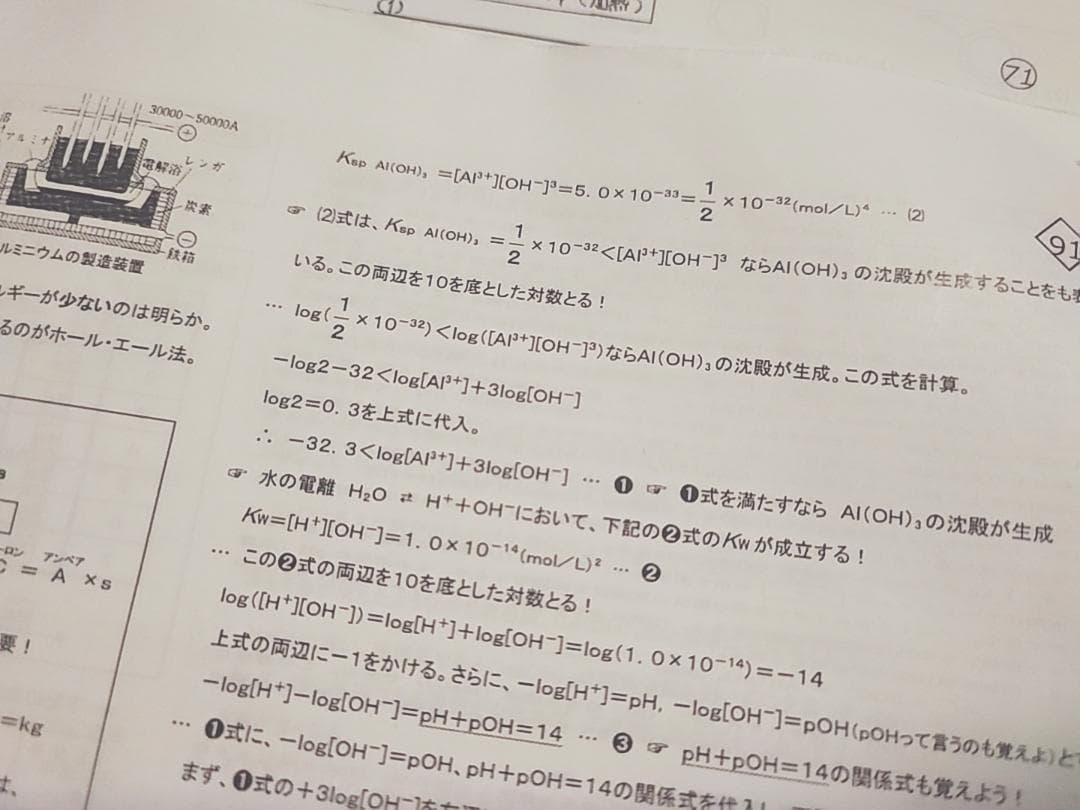 (1)
(加熱)
71
30000～50000A
⊕
アルミナ
電解浴
レンガ
炭素
⊖
鉄箱
ルミニウムの製造装置
ルギーが少ないのは明らか。
るのがホール・エール法。
Ksp Al(OH)₃ ＝[Al³⁺][OH⁻]³＝5. 0×10⁻³³＝1/2 ×10⁻³²(mol/L)⁴ … (2)
91
☞ (2)式は、Ksp Al(OH)₃ ＝1/2 ×10⁻³²＜[Al³⁺][OH⁻]³ ならAl(OH)₃の沈殿が生成することをも
いる。この両辺を10を底とした対数とる！
… log(1/2 ×10⁻³²)＜log([Al³⁺][OH⁻]³)ならAl(OH)₃の沈殿が生成。この式を計算。
－log2－32＜log[Al³⁺]＋3log[OH⁻]
log2＝0. 3を上式に代入。
∴ －32. 3＜log[Al³⁺]＋3log[OH⁻] … ❶ ☞ ❶式を満たすなら Al(OH)₃の沈殿が生成
☞ 水の電離 H₂O ⇄ H⁺＋OH⁻において、下記の❷式のKwが成立する！
Kw＝[H⁺][OH⁻]＝1. 0×10⁻¹⁴(mol/L)² … ❷
… この❷式の両辺を10を底とした対数とる！
log([H⁺][OH⁻])＝log[H⁺]＋log[OH⁻]＝log(1. 0×10⁻¹⁴)＝－14
上式の両辺に－1をかける。さらに、－log[H⁺]＝pH, －log[OH⁻]＝pOH(pOHって言うのも覚えよ)と
－log[H⁺]－log[OH⁻]＝pH＋pOH＝14 … ❸ ☞ pH＋pOH＝14の関係式も覚えよう！
… ❶式に、－log[OH⁻]＝pOH、pH＋pOH＝14の関係式を代入！
まず、❶式の＋3log[OH⁻]を
ーロン アンペア
C ＝ A ×s
要！
＝kg
は、